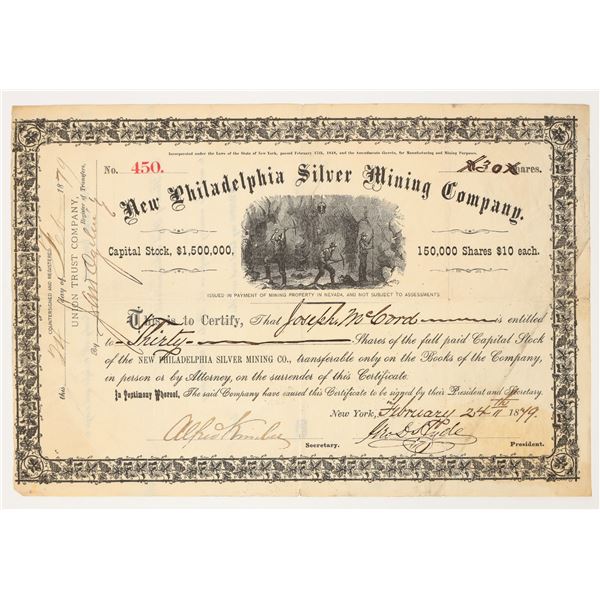 Incorporated under the Laws of the State of New York, passed February 17th, 1848, and the Amendments thereto, for Manufacturing and Mining Purposes.
No. 450.
X30X Shares.
New Philadelphia Silver Mining Company.
Capital Stock, $1,500,000,
150,000 Shares $10 each.
ISSUED IN PAYMENT OF MINING PROPERTY IN NEVADA, AND NOT SUBJECT TO ASSESSMENTS
This is to Certify, That Joseph McCord is entitled
to Thirty Shares of the full paid Capital Stock
of the NEW PHILADELPHIA SILVER MINING CO., transferable only on the Books of the Company,
in person or by Attorney, on the surrender of this Certificate.
In Testimony Whereof, The said Company have caused this Certificate to be signed by their President and Secretary.
New York, February 24th 1879.
Alfred
Secretary.
President.
COUNTERSIGNED AND REGISTERED
this 24 day of Feb 1879
UNION TRUST COMPANY,
Register of Transfers,
By